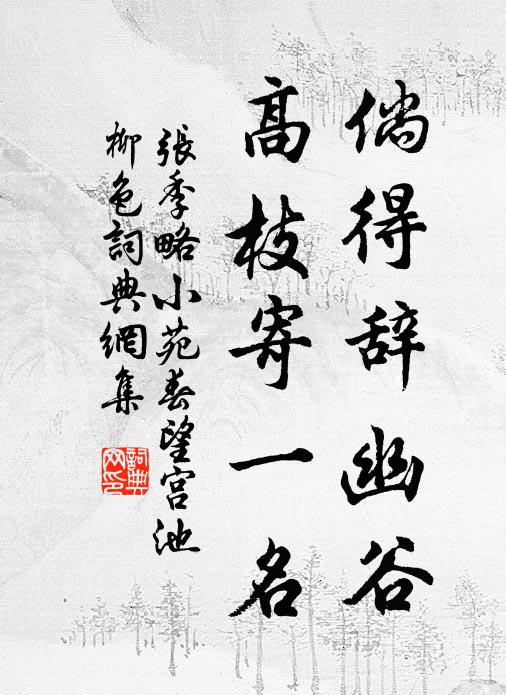 倘得辞幽谷
高枝寄一名
張季略小苑春望宫池
柳色詞典網集
詞典网印